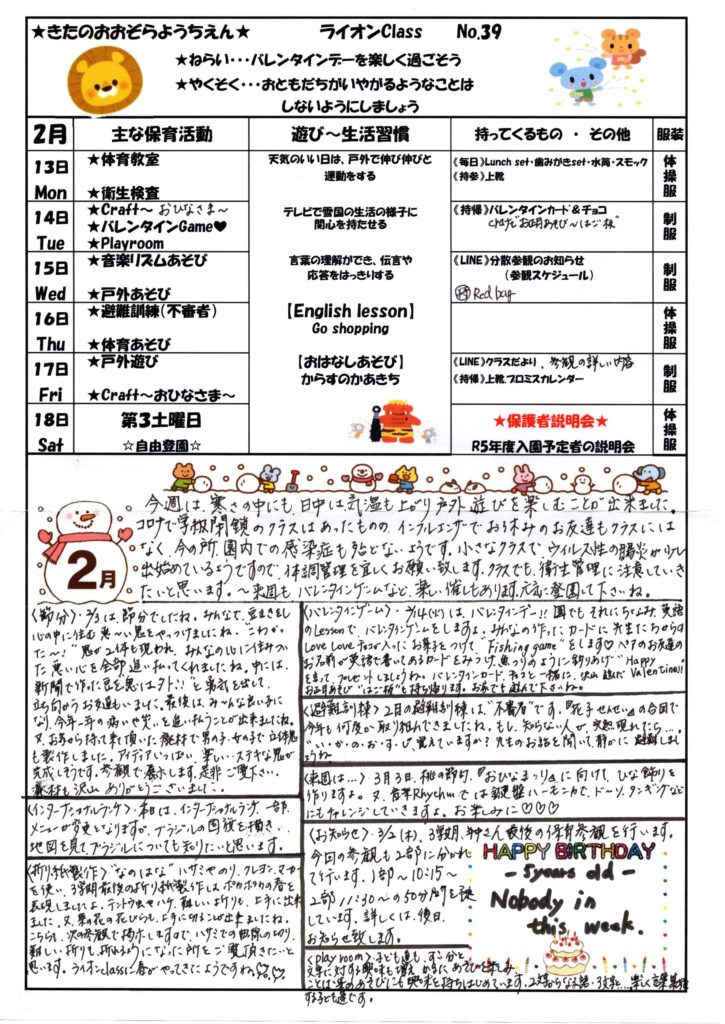 ★きたのおおぞらようちえん★ ライオンClass No.39
★ねらい・・・バレンタインデーを楽しく過ごそう
★やくそく・・・おともだちがいやがるようなことは
しないようにしましょう
2月 主な保育活動 遊び～生活習慣 持ってくるもの ・ その他 服装
13日 Mon
★体育教室
★衛生検査
天気のいい日は、戸外で伸び伸びと
運動をする
《毎日》Lunch set・歯みがきset・水筒・スモック
《持参》上靴
体操服
14日 Tue
★Craft～ おひなさま～
★バレンタインGame♥
★Playroom
テレビで雪国の生活の様子に
関心を持たせる
《持帰》バレンタインカード＆チョコ
制服
15日 Wed
★音楽リズムあそび
★戸外あそび
言葉の理解ができ、伝言や
応答をはっきりする
《LINE》分散参観のお知らせ
（参観スケジュール）
Red bag
制服
16日 Thu
★避難訓練(不審者)
★体育あそび
【English lesson】
Go shopping
体操服
17日 Fri
★戸外遊び
★Craft～おひなさま～
【おはなしあそび】
からすのかあきち
《LINE》クラスだより、参観の詳しい内容
《持帰》上靴、プロミスカレンダー
制服
18日 Sat
第3土曜日
☆自由登園☆
★保護者説明会★
R5年度入園予定者の説明会
体操服
2月
今週は、寒さの中にも、日中は気温も上がり戸外遊びを楽しむことが出来ました。
コロナで学級閉鎖のクラスはあったものの、インフルエンザでお休みのお友達もクラスには
なく、今の所、園内での感染症も殆どないようです。小さなクラスで、ウイルス性の腸炎が少し
出始めているようですので、体調管理を宜しくお願い致します。クラスでも、衛生管理に注意していき
たいと思います。～来週もバレンタインゲームなど、楽しい催しもあります。元気に登園して下さいね。
〈節分〉・2/3は、節分でしたね。みんなで、豆まきをし
心の中に住む悪～い鬼をやっつけましたね。“こわかっ
た～！”鬼が2体も現われ、みんなの心に住みつい
た悪い心を全部追い払ってくれましたね。中には、
新聞で作った豆を“鬼は外!!”と勇気を出して、
立ち向うお友達もいました。最後は、みんな良い子に
なり、今年一年の病いや災いを追い払うことが出来ましたね。
又、お家から持って来て頂いた廃材で男の子、女の子で立体鬼
も製作しました。アイディアいっぱい、楽しい、ステキな鬼が
完成しそうです。参観で展示します。是非ご覧下さい。
素材も沢山ありがとうございました。
〈インターナショナルランチ〉・本日は、インターナショナルランチ、一部、
メニューが変更となりますが、ブラジルの国旗を描き、
地図を見て、ブラジルについても知りたいと思います。
〈折り紙製作〉“なのはな” ハサミやのり、クレヨン、マーカー
を使い、3学期最後の折り紙製作は、ポカポカの春を
表現しましたよ。テントウ虫やハケ、難しい折りも、上手に出来
ました。又、菜の花の花びらも、上手に切ることが出来ましたね。
こちらも、次の参観で掲示しますので、ハサミでの曲線の切り、
難しい折りも折れるようになった所をご覧頂きたいと
思います。ライオンclassに春がやってきたようですね♡
〈バレンタインゲーム〉・2/14(火)は、バレンタインデー!! 園でもそれにちなみ、英語
のLessonで、バレンタインゲームをしますよ。みんなの作ったカードに先生たちからの
Love Love チョコが入ったお菓子をつけて、“Fishing game”をします♡ペアのお友達の
お名前が英語で書いてあるカードをみつけ、魚つりのように釣りあげ“Happy Valentine!!”
を言って、プレゼントしましょうね。バレンタインカード、チョコと一緒に、沢山遊んだ
お正月あそび“はご板”を持ち帰ります。お家でも遊んで下さいね。
〈避難訓練〉・2月の避難訓練は“不審者”です。“花子せんせい”の合図で
今年も何度か取り組んできましたね。もし、知らない人が、突然現れたら…
“い・か・の・お・す・し”覚えていますか？先生のお話を聞いて静かに避難しまし
ょうね
〈来週は…〉・3月3日、桃の節句、『おひなまつり』に向けて、ひな飾りを
作りますよ。又、音楽Rhythmでは鍵盤ハーモニカで、ド～ソ、タンギングなど
にもチャレンジしていきますよ。お楽しみに♡♡♡
〈お知らせ〉・3/2(木)、3学期、年中さん最後の保育参観を行います。
今回の参観も2部に分かれ
て行います。1部～10:15～
2部11:30～の50分間を予
しています。詳しくは、後日、
お知らせ致します。
HAPPY BIRTHDAY
- 5years old -
Nobody in
this week.
〈play room〉・子ども達も、ずい分と
文字に対する興味も増え、